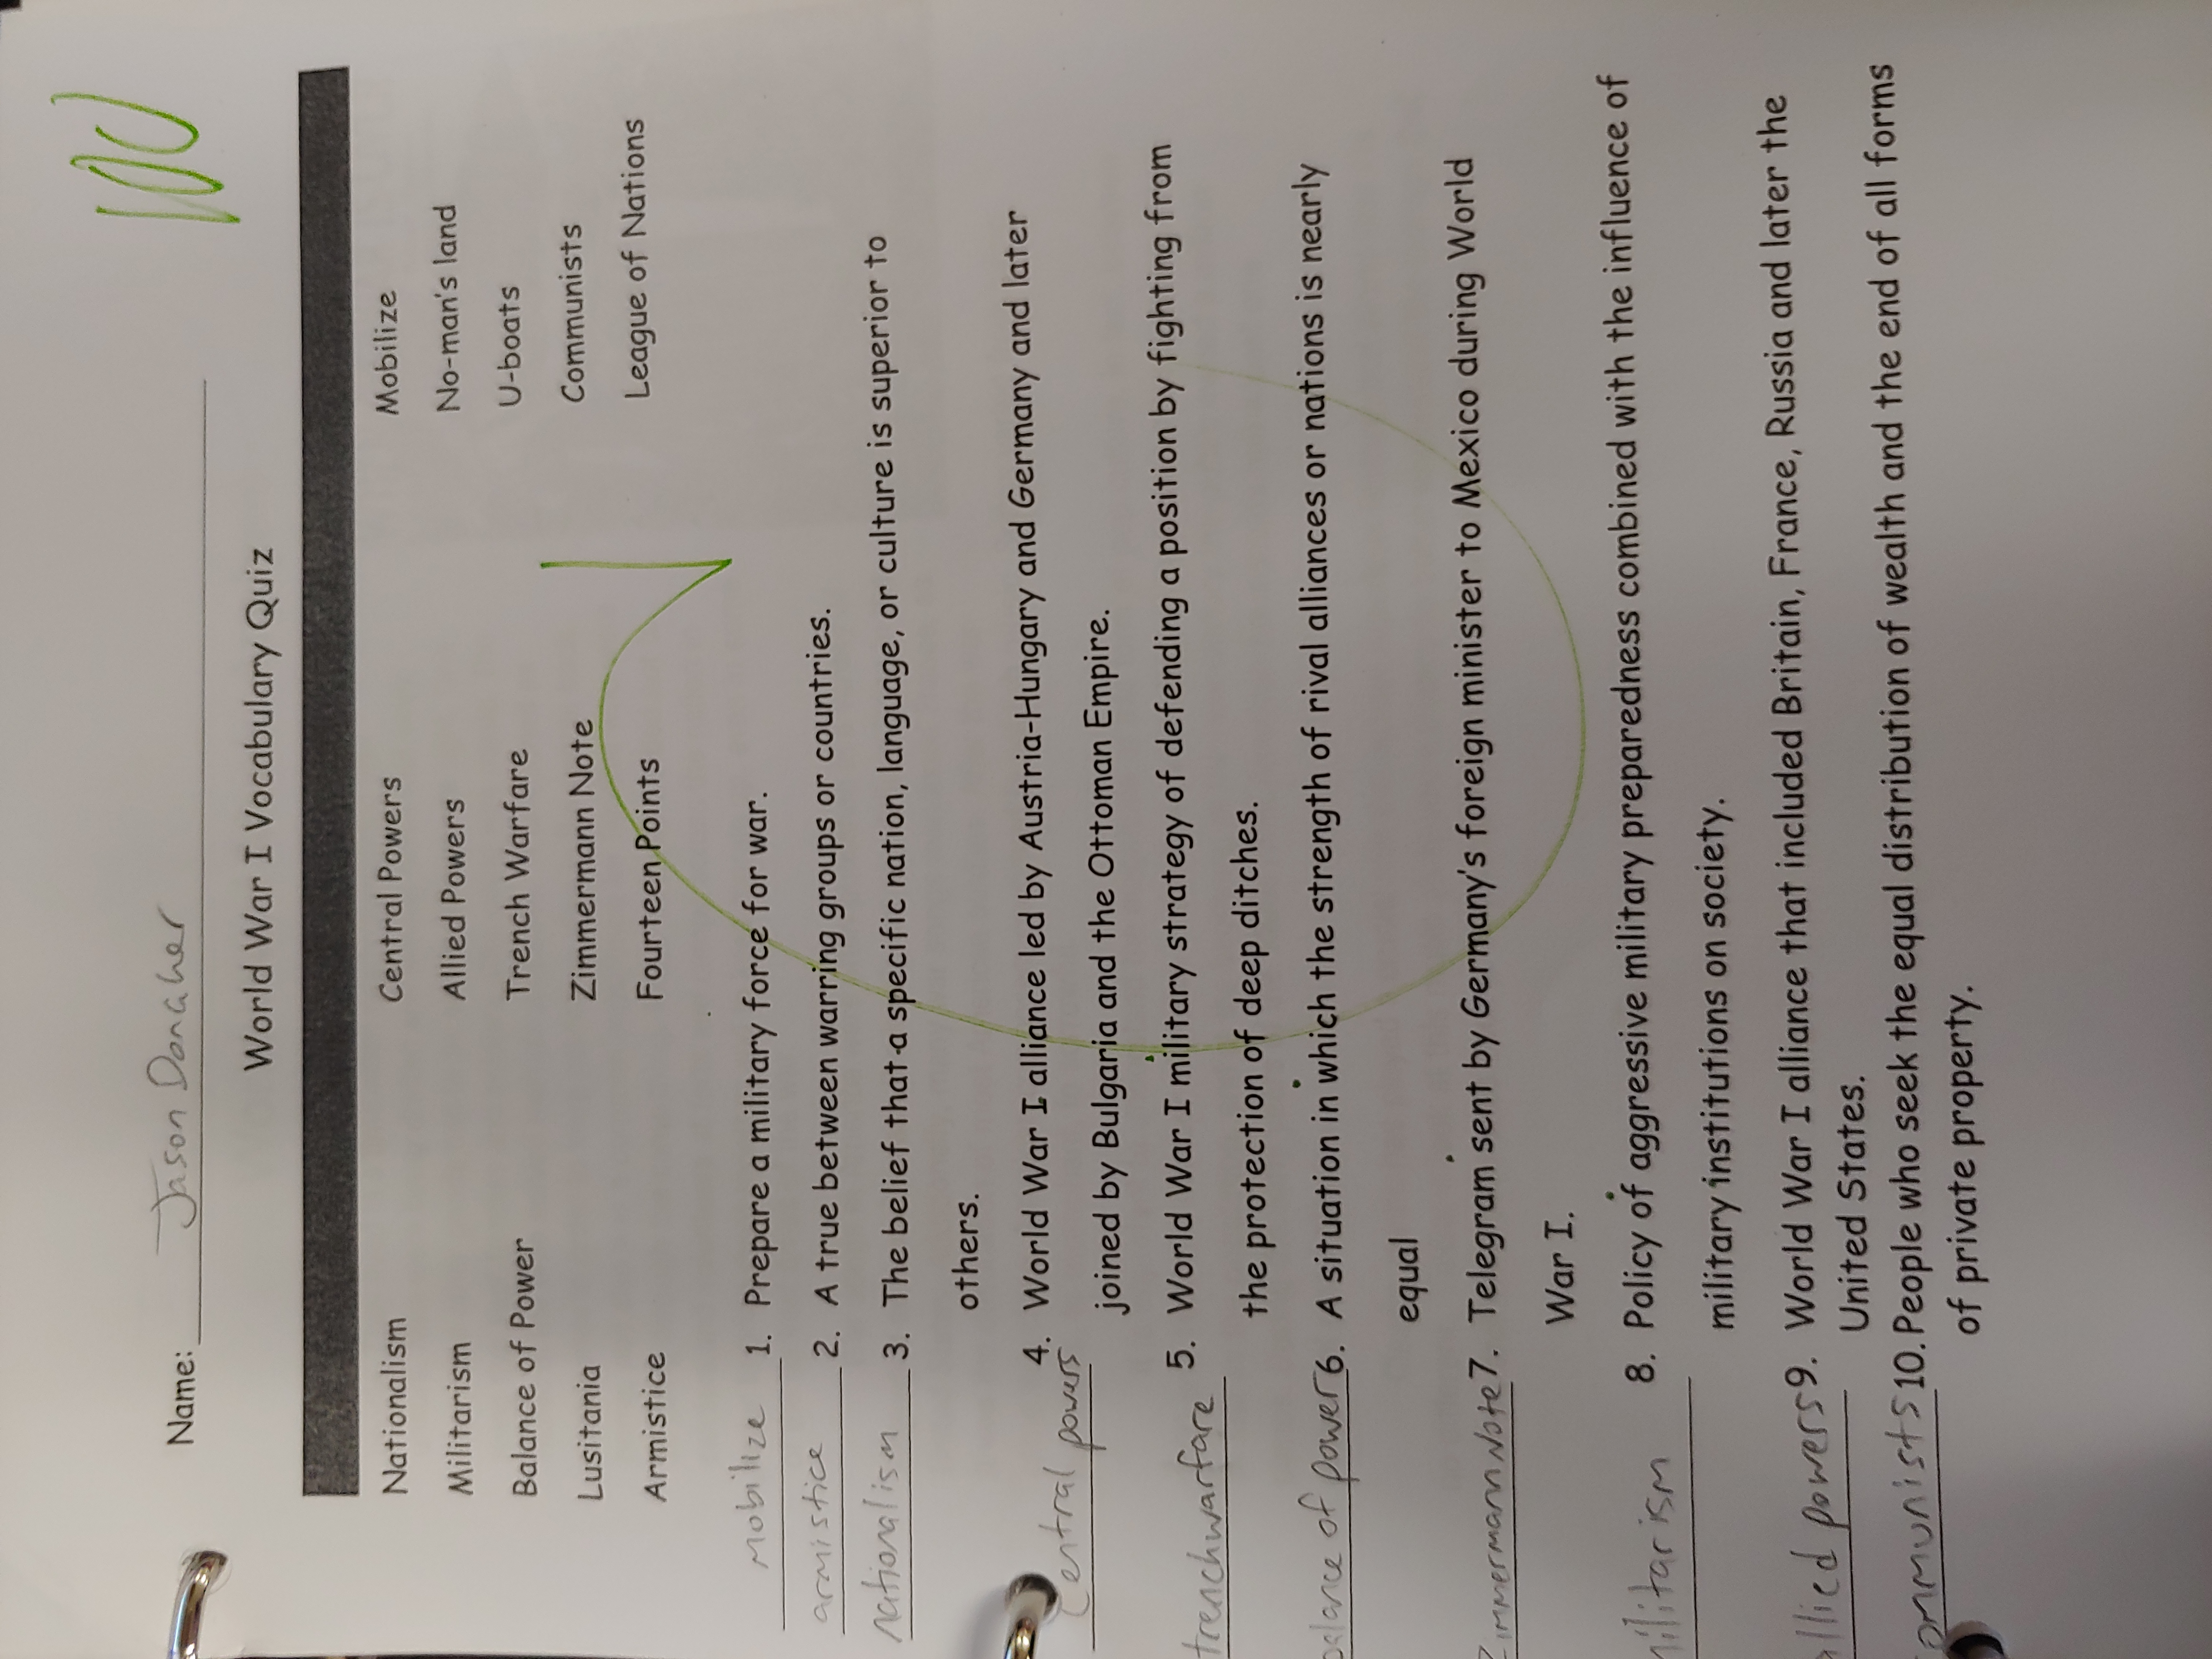 100
Name: Jason Donaher
World War I Vocabulary Quiz
Nationalism Central Powers Mobilize
Militarism Allied Powers No-man's land
Balance of Power Trench Warfare U-boats
Lusitania Zimmermann Note Communists
Armistice Fourteen Points League of Nations
Mobilize 1. Prepare a military force for war.
armistice 2. A true between warring groups or countries.
nationalism 3. The belief that a specific nation, language, or culture is superior to
others.
Central powers 4. World War I alliance led by Austria-Hungary and Germany and later
joined by Bulgaria and the Ottoman Empire.
trench warfare 5. World War I military strategy of defending a position by fighting from
the protection of deep ditches.
balance of power 6. A situation in which the strength of rival alliances or nations is nearly
equal
Zimmermann Note 7. Telegram sent by Germany's foreign minister to Mexico during World
War I.
militarism 8. Policy of aggressive military preparedness combined with the influence of
military institutions on society.
allied powers 9. World War I alliance that included Britain, France, Russia and later the
United States.
communists 10. People who seek the equal distribution of wealth and the end of all forms
of private property.